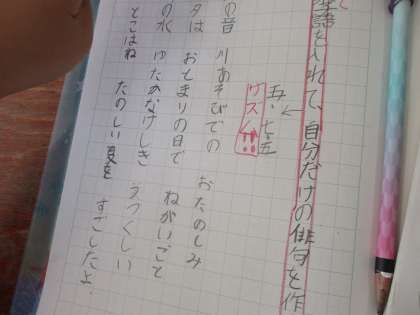 季語を入れて、自分だけの俳句を作
五・七・五
の昔 川あそびでの おたのしみ
タは おとまりの日で ねがいごと
の水 ゆたかなけしき うつくしい
とこはね たのしい夏を すごしたよ。